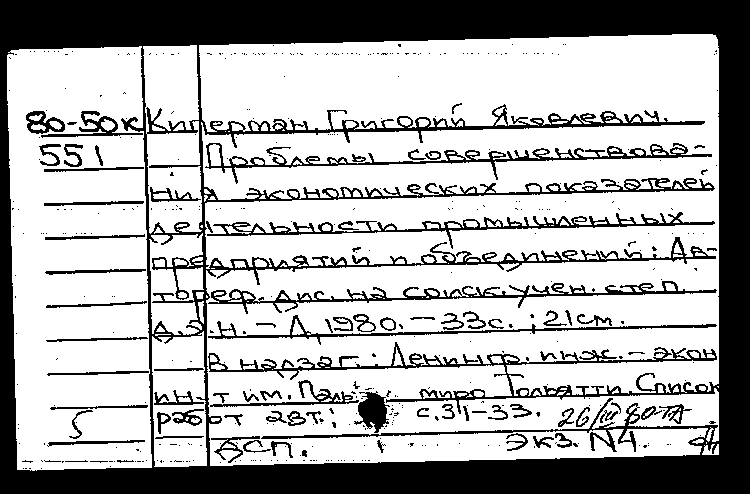 80-50к Киперман, Григорий Яковлевич.
551 Проблемы совершенствова-
ния экономических показателей
деятельности промышленных
предприятий и объединений: Ав-
тореф. дис. на соиск. учен. степ.
д.э.н. - Л, 1980. - 33с. ; 21см.
В надзаг.: Ленингр. инж.-экон
ин-т им. Паль миро Тольятти. Список
5 работ 28т.; с.31-33. 26/III 80
ДСП. Экз. N4.